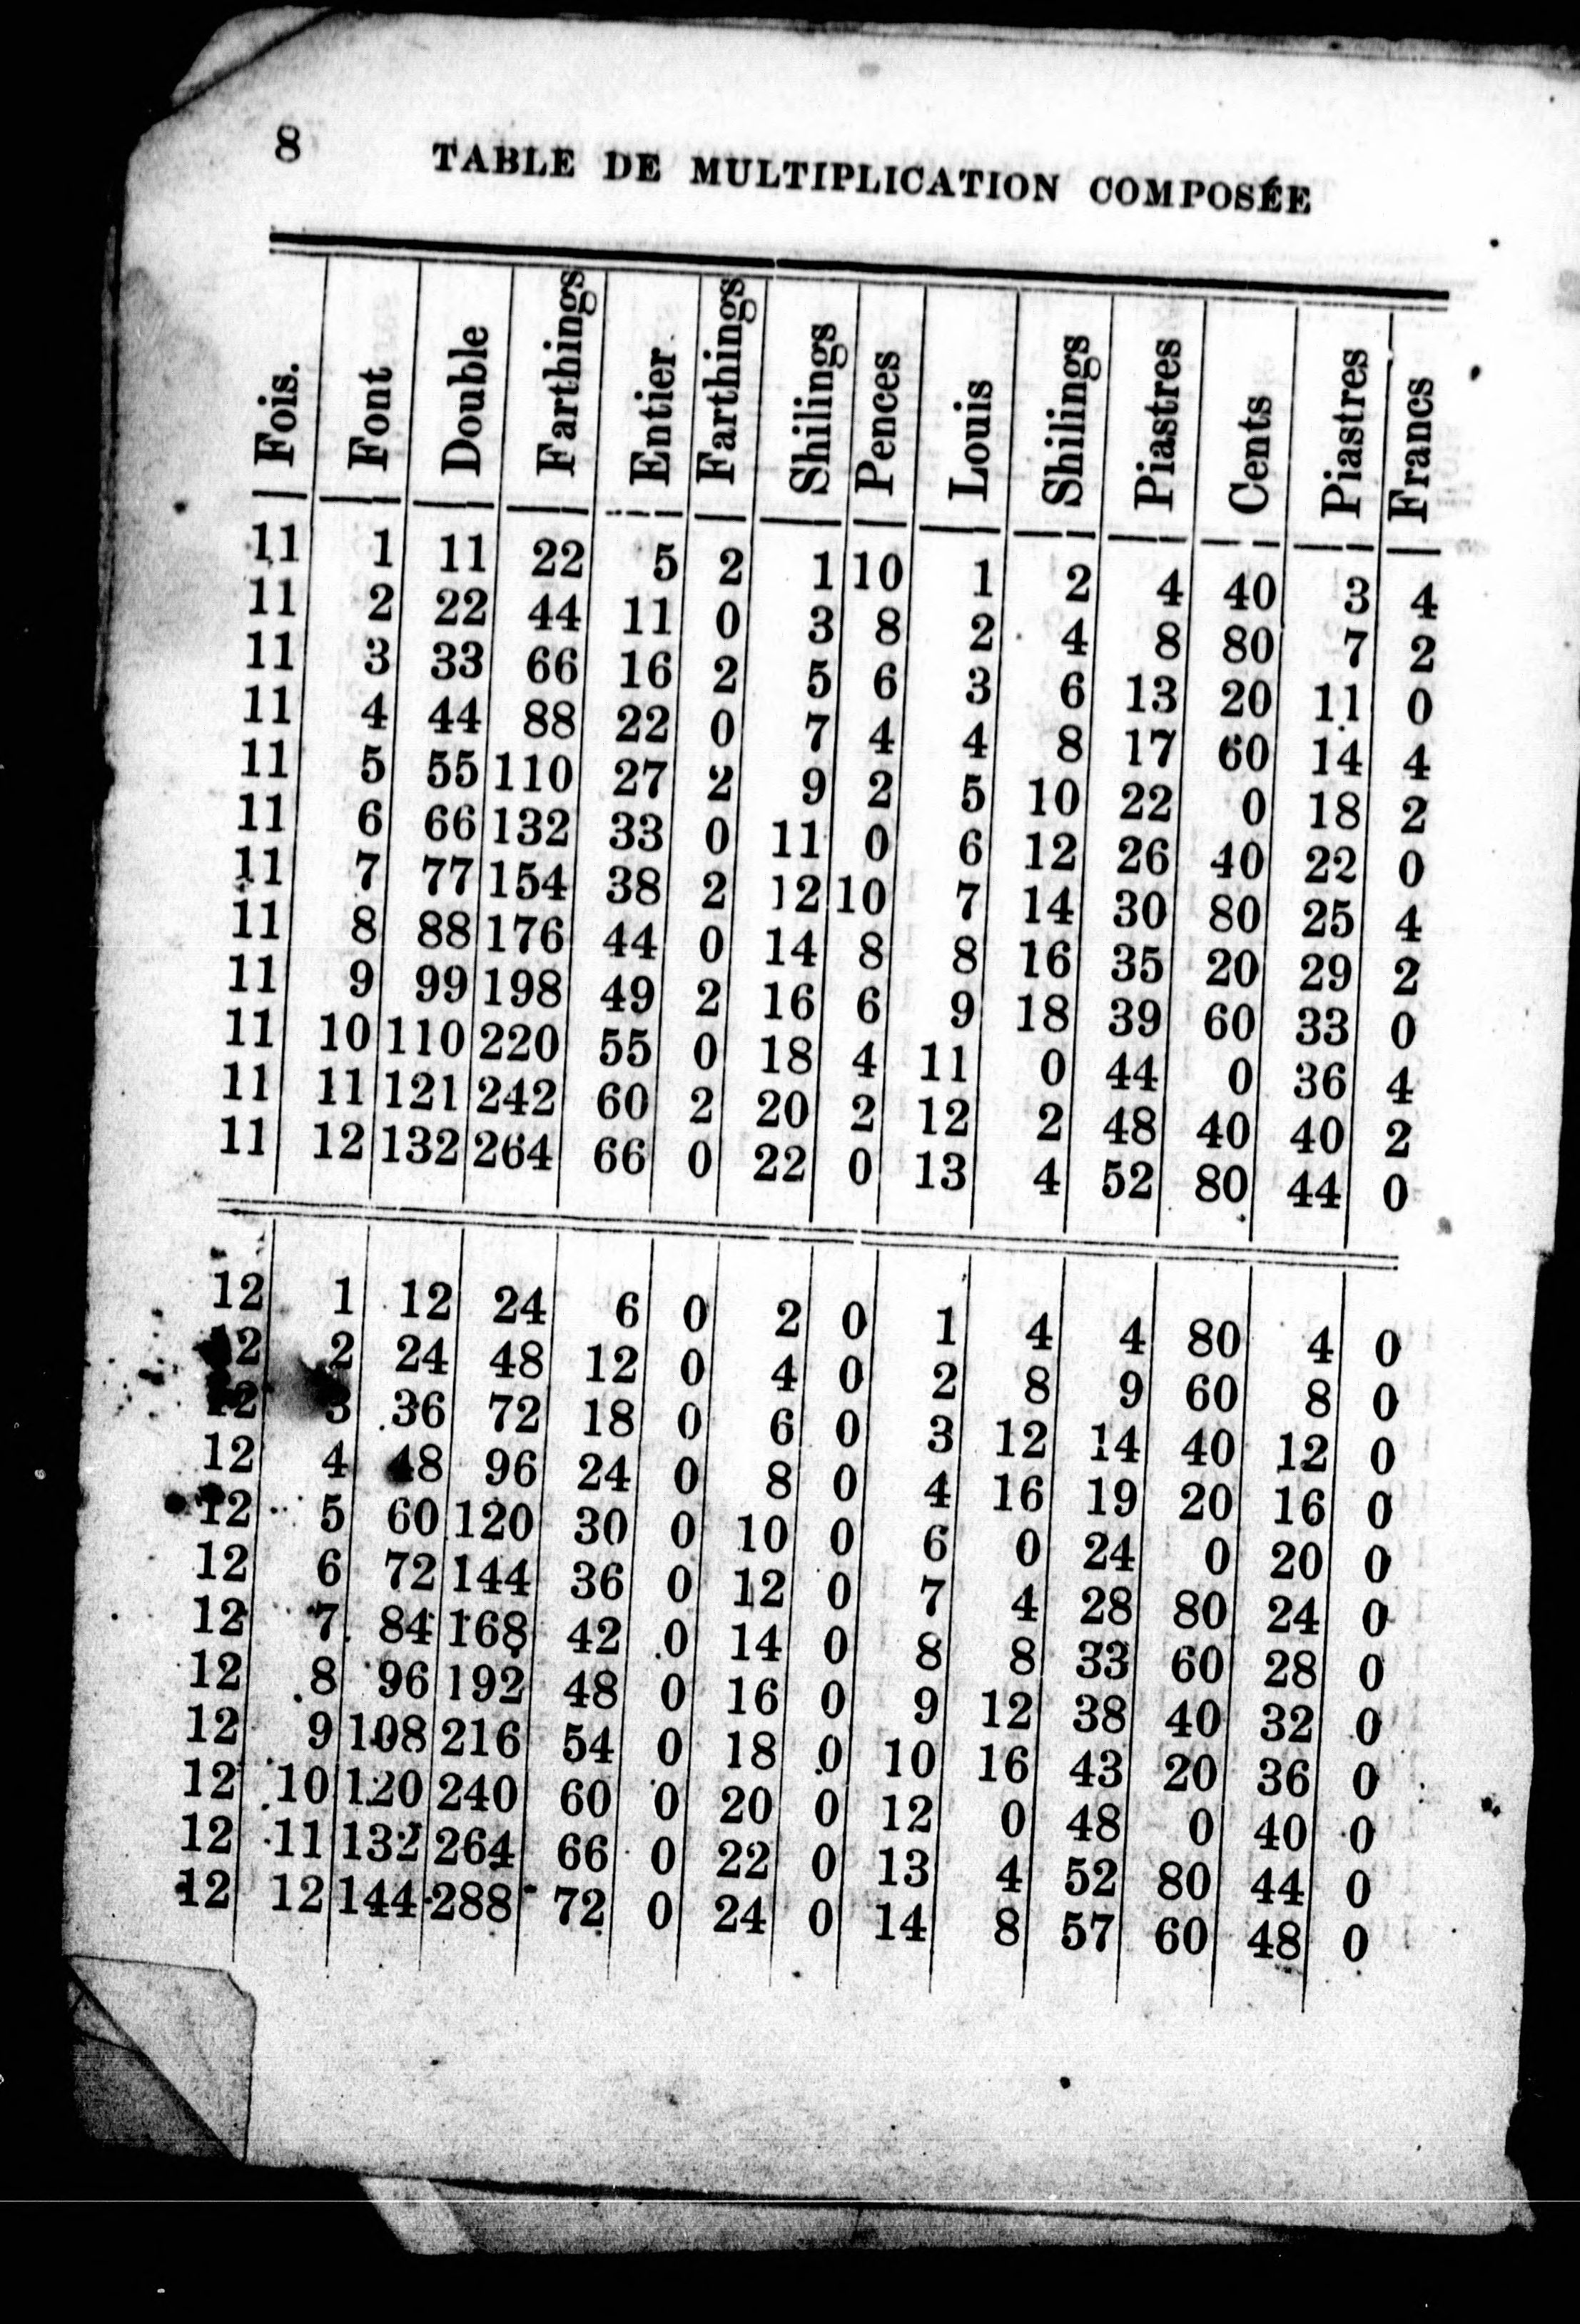 8 TABLE DE MULTIPLICATION COMPOSÉE
Fois. Font Double Farthings Entier Farthings Shilings Pences Louis Shilings Piastres Cents Piastres Francs
11 1 11 22 5 2 1 10 1 2 4 40 3 4
11 2 22 44 11 0 3 8 2 4 8 80 7 2
11 3 33 66 16 2 5 6 3 6 13 20 11 0
11 4 44 88 22 0 7 4 4 8 17 60 14 4
11 5 55 110 27 2 9 2 5 10 22 0 18 2
11 6 66 132 33 0 11 0 6 12 26 40 22 0
11 7 77 154 38 2 12 10 7 14 30 80 25 4
11 8 88 176 44 0 14 8 8 16 35 20 29 2
11 9 99 198 49 2 16 6 9 18 39 60 33 0
11 10 110 220 55 0 18 4 11 0 44 0 36 4
11 11 121 242 60 2 20 2 12 2 48 40 40 2
11 12 132 264 66 0 22 0 13 4 52 80 44 0
12 1 12 24 6 0 2 0 1 4 4 80 4 0
12 2 24 48 12 0 4 0 2 8 9 60 8 0
12 3 36 72 18 0 6 0 3 12 14 40 12 0
12 4 48 96 24 0 8 0 4 16 19 20 16 0
12 5 60 120 30 0 10 0 6 0 24 0 20 0
12 6 72 144 36 0 12 0 7 4 28 80 24 0
12 7 84 168 42 0 14 0 8 8 33 60 28 0
12 8 96 192 48 0 16 0 9 12 38 40 32 0
12 9 108 216 54 0 18 0 10 16 43 20 36 0
12 10 120 240 60 0 20 0 12 0 48 0 40 0
12 11 132 264 66 0 22 0 13 4 52 80 44 0
12 12 144 288 72 0 24 0 14 8 57 60 48 0